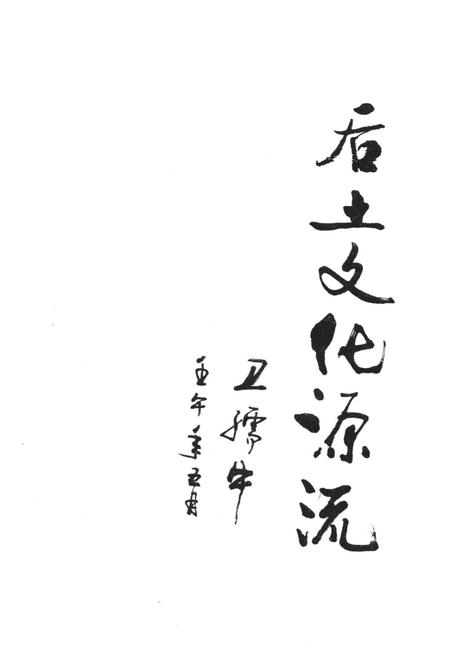 后土文化源流
卫孺牛
壬午年五月